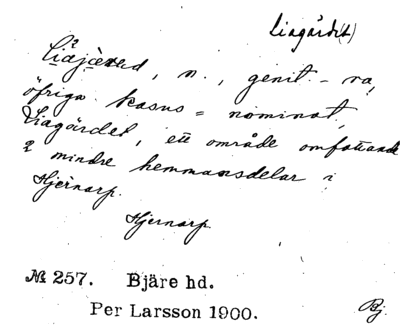 Liagärde(t)
Liajæred, n., genit. - ra,
öfriga kasus = nominat,
Liagärdet, ett område omfattande
2 mindre hemmansdelar i
Hjernarp.
Hjernarp
№ 257. Bjäre hd.
Per Larsson 1900.
Bj.